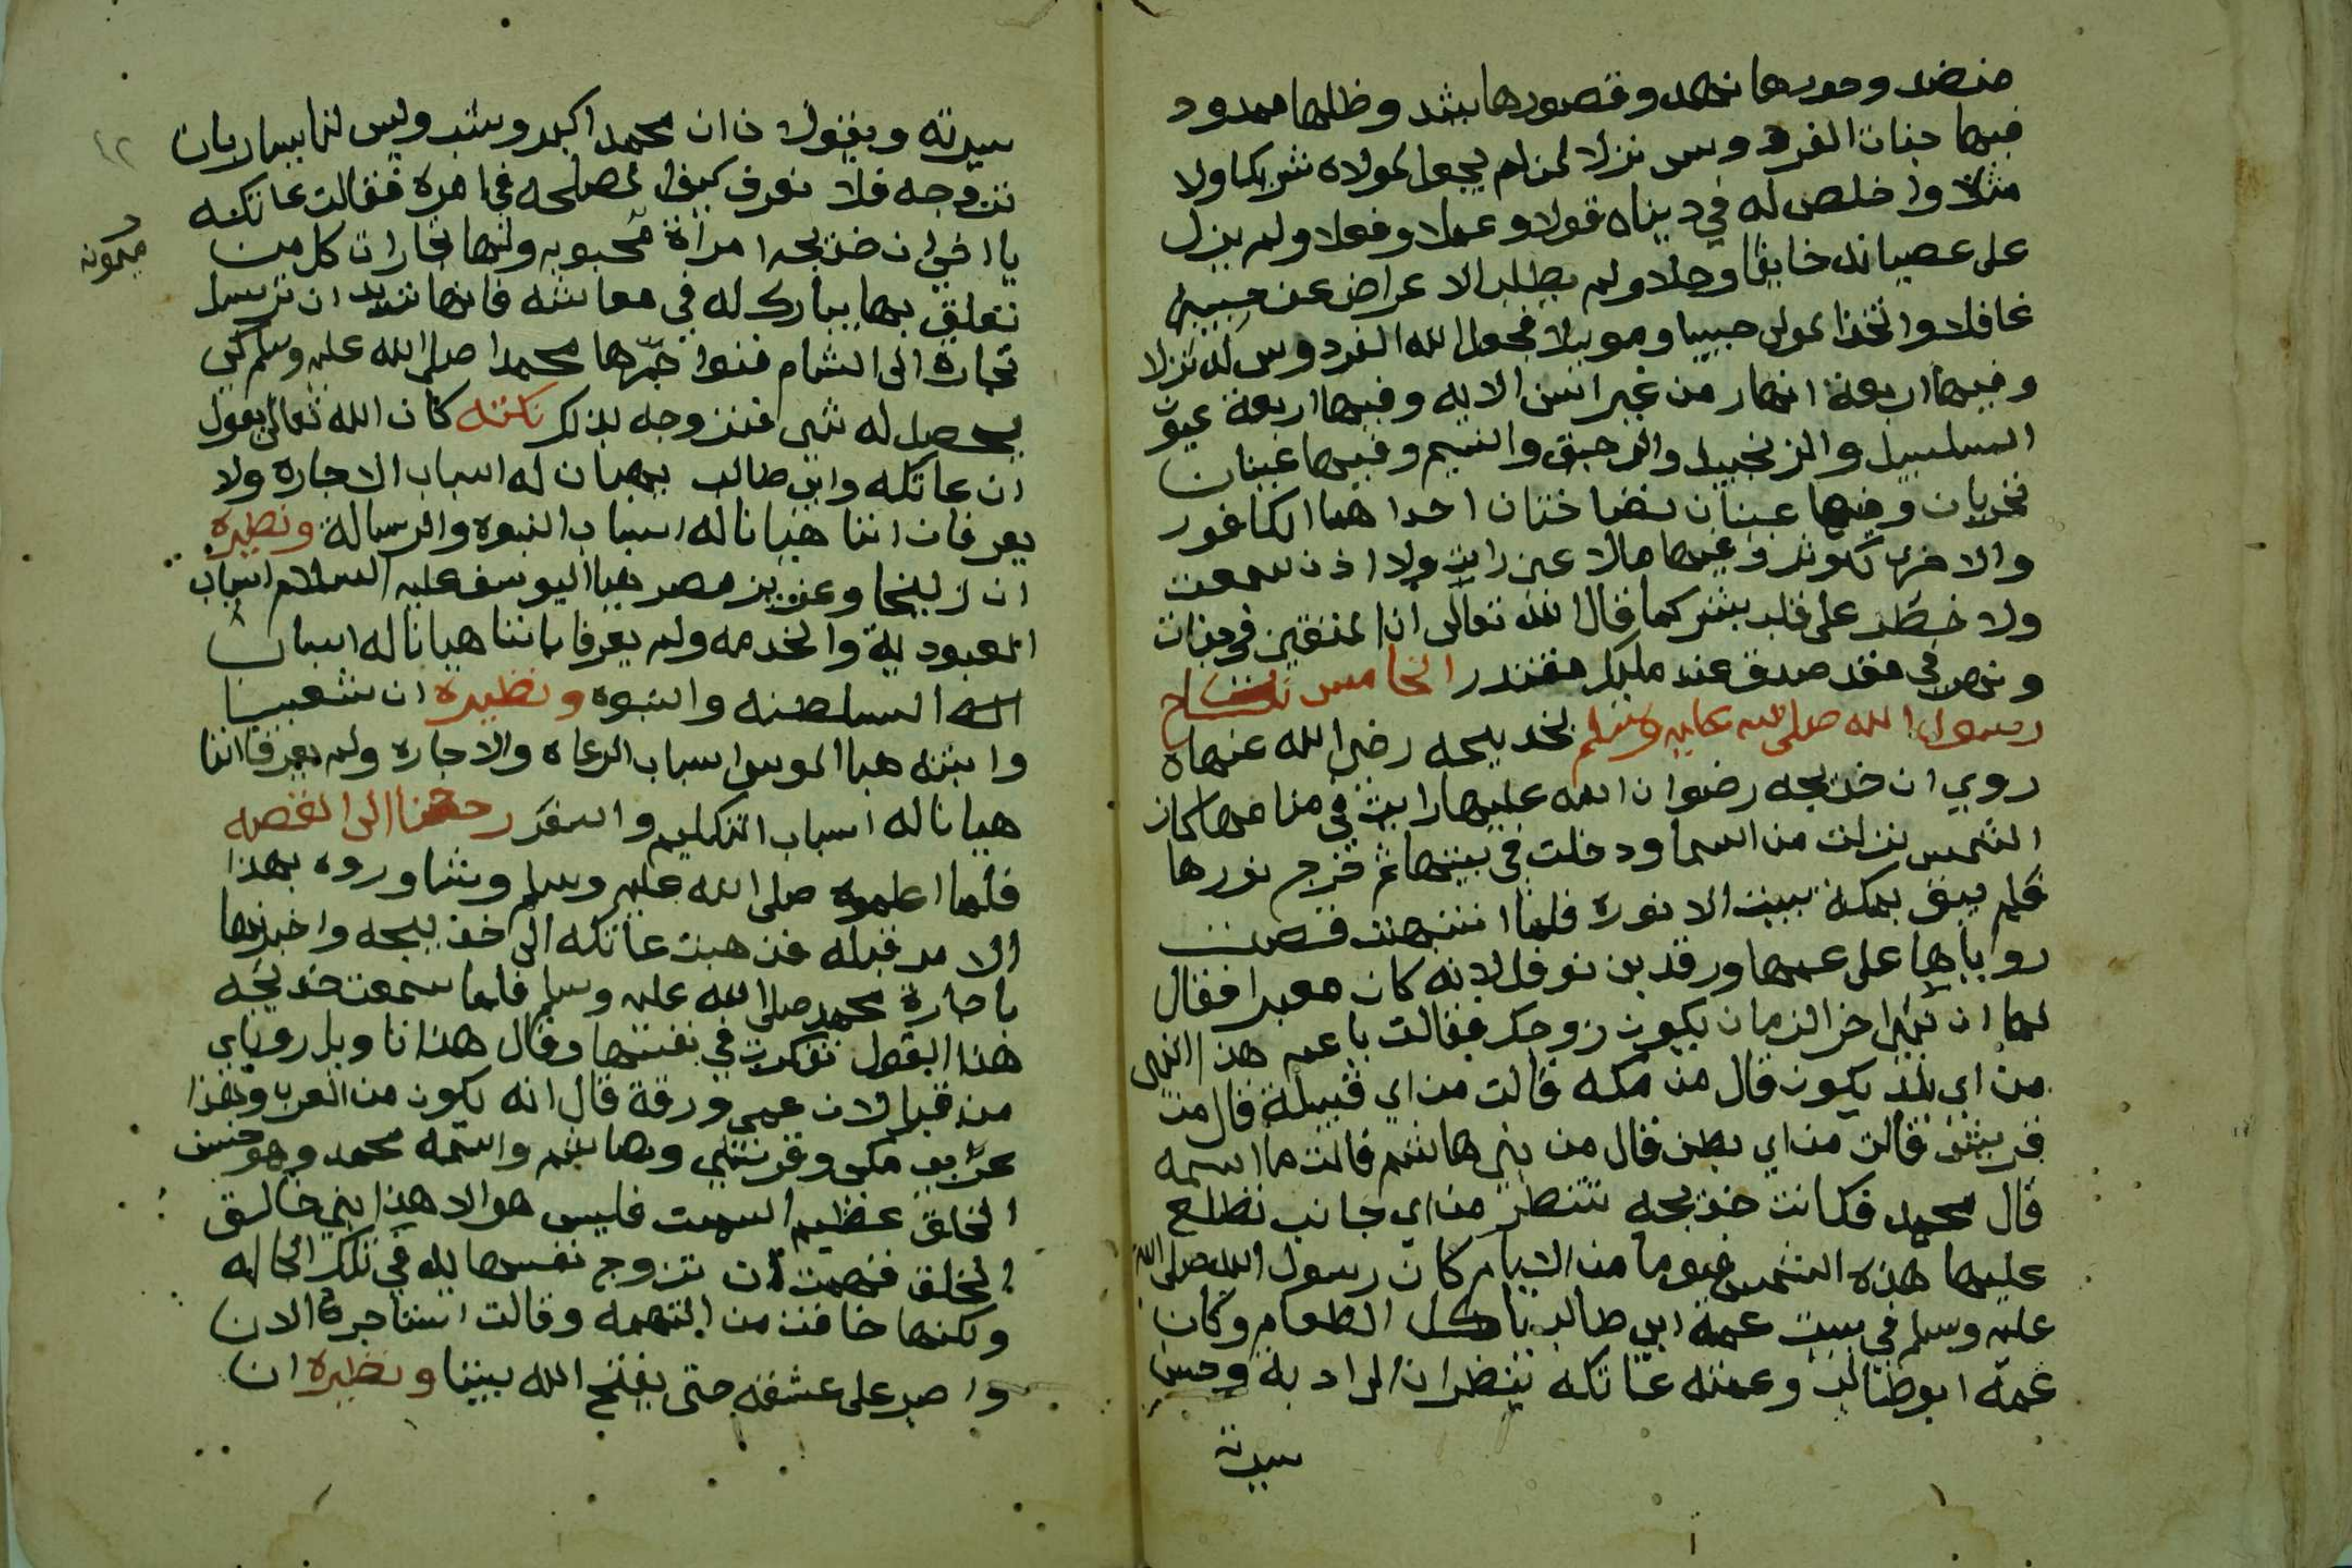 منضد وحورها نهد وقصورها بشد وظلها ممدود
فيها جنات الفردوس نزلا لمن لم يجعل لمولاه شريكا ولا
مثلا واخلص له في ديناه قولا وعملا وفعلا ولم يزل
على عصيانه خايفا وجلا ولم يطلب الاعراض عن حبيبه
غافلا واتخذ المولى حبيبا وموبلا فجعل الله الفردوس له نزلا
وفيها اربعة انهار من غير اسن الايه وفيها اربعة عيون
السلسبيل والزنجبيل والرحيق والتسنيم وفيها عينان
تجريان وفيها عينان نضاختان احداهما الكافور
والاخرى الكوثر وفيها مالا عين رات ولا اذن سمعت
ولا خطر على قلب بشر كما قال الله تعالى ان المتقين في جنات
ونهر في مقعد صدق عند مليك مقتدر الخامس نكاح
رسول الله صلى الله عليه وسلم بخديجه رضي الله عنها
روي ان خديجه رضوان الله عليها رايت في منامها كان
الشمس نزلت من السما ودخلت في بيتها ثم خرج نورها
فلم يبق بمكة بيت الا نوره فلما انتبهت قصت
روياها على عمها ورقه بن نوفل لانه كان معبرا فقال
لها ان نبي اخر الزمان يكون زوجك فقالت يا عم هذا النبي
من اي بلد يكون قال من مكه قالت من اي قبيلة قال من
قريش قالت من اي بطن قال من بني هاشم قالت ما اسمه
قال محمد فكانت خديجه تنتظر من اي جانب تطلع
عليها هذه الشمس فيوما من الايام كان رسول الله صلى الله
عليه وسلم في بيت عمه ابي طالب ياكل الطعام وكان
عمه ابو طالب وعمته عاتكه ينظران الى ادبه وحسن
سيرته
سيرته ويقولان ان محمد اكبر وشب وليس لنا يسار بان
نزوجه فلا نعرف كيف المصلحه في امره فقالت عاتكه
يا اخي ان خديجه امراة محبوبه ولها تجارات كل من
ميمونه
تعلق بها يبارك له في معاشه فانها تريد ان ترسل
تجارة الى الشام فنواجرها محمدا صلى الله عليه وسلم لكي
يحصل له شي فنزوجه بذلك نكته كان الله تعالى يقول
ان عاتكه وابي طالب يهيان له اسباب الاجاره ولا
يعرفان اننا هيانا له اسباب النبوه والرسالة ونظيره
ان زليخا وعزيز مصر هيا اليوسف عليه السلام اسباب
العبودية والخدمه ولم يعرفا باننا هيانا له اسباب
السلطنه والنبوه ونظيره ان شعيبا
وابنته هيا الموسى اسباب الرعاه والاجاره ولم يعرفا اننا
هيانا له اسباب التكليم والسفر رجعنا الى القصه
فلما اعلموه صلى الله عليه وسلم وشاوروه بهذا
الامر قبله فذهبت عاتكه الى خديجه واخبرتها
باجارة محمد صلى الله عليه وسلم فلما سمعت خديجه
هذا القول تفكرت في نفسها وقال هذا تاويل روياي
من قبل لان عمي ورقة قال انه يكون من العرب وهذا
عربي مكي وقرشي وهاشم واسمه محمد وهو حسن
الخلق عظيم السمت فليس هو الا هذا النبي خالق
الخلق فهمت ان تزوج نفسها له في تلك الحاله
ولكنها خافت من التهمه وقالت استاجره الان
واصبر على عشقه حتى يفتح الله بيننا ونظيره ان